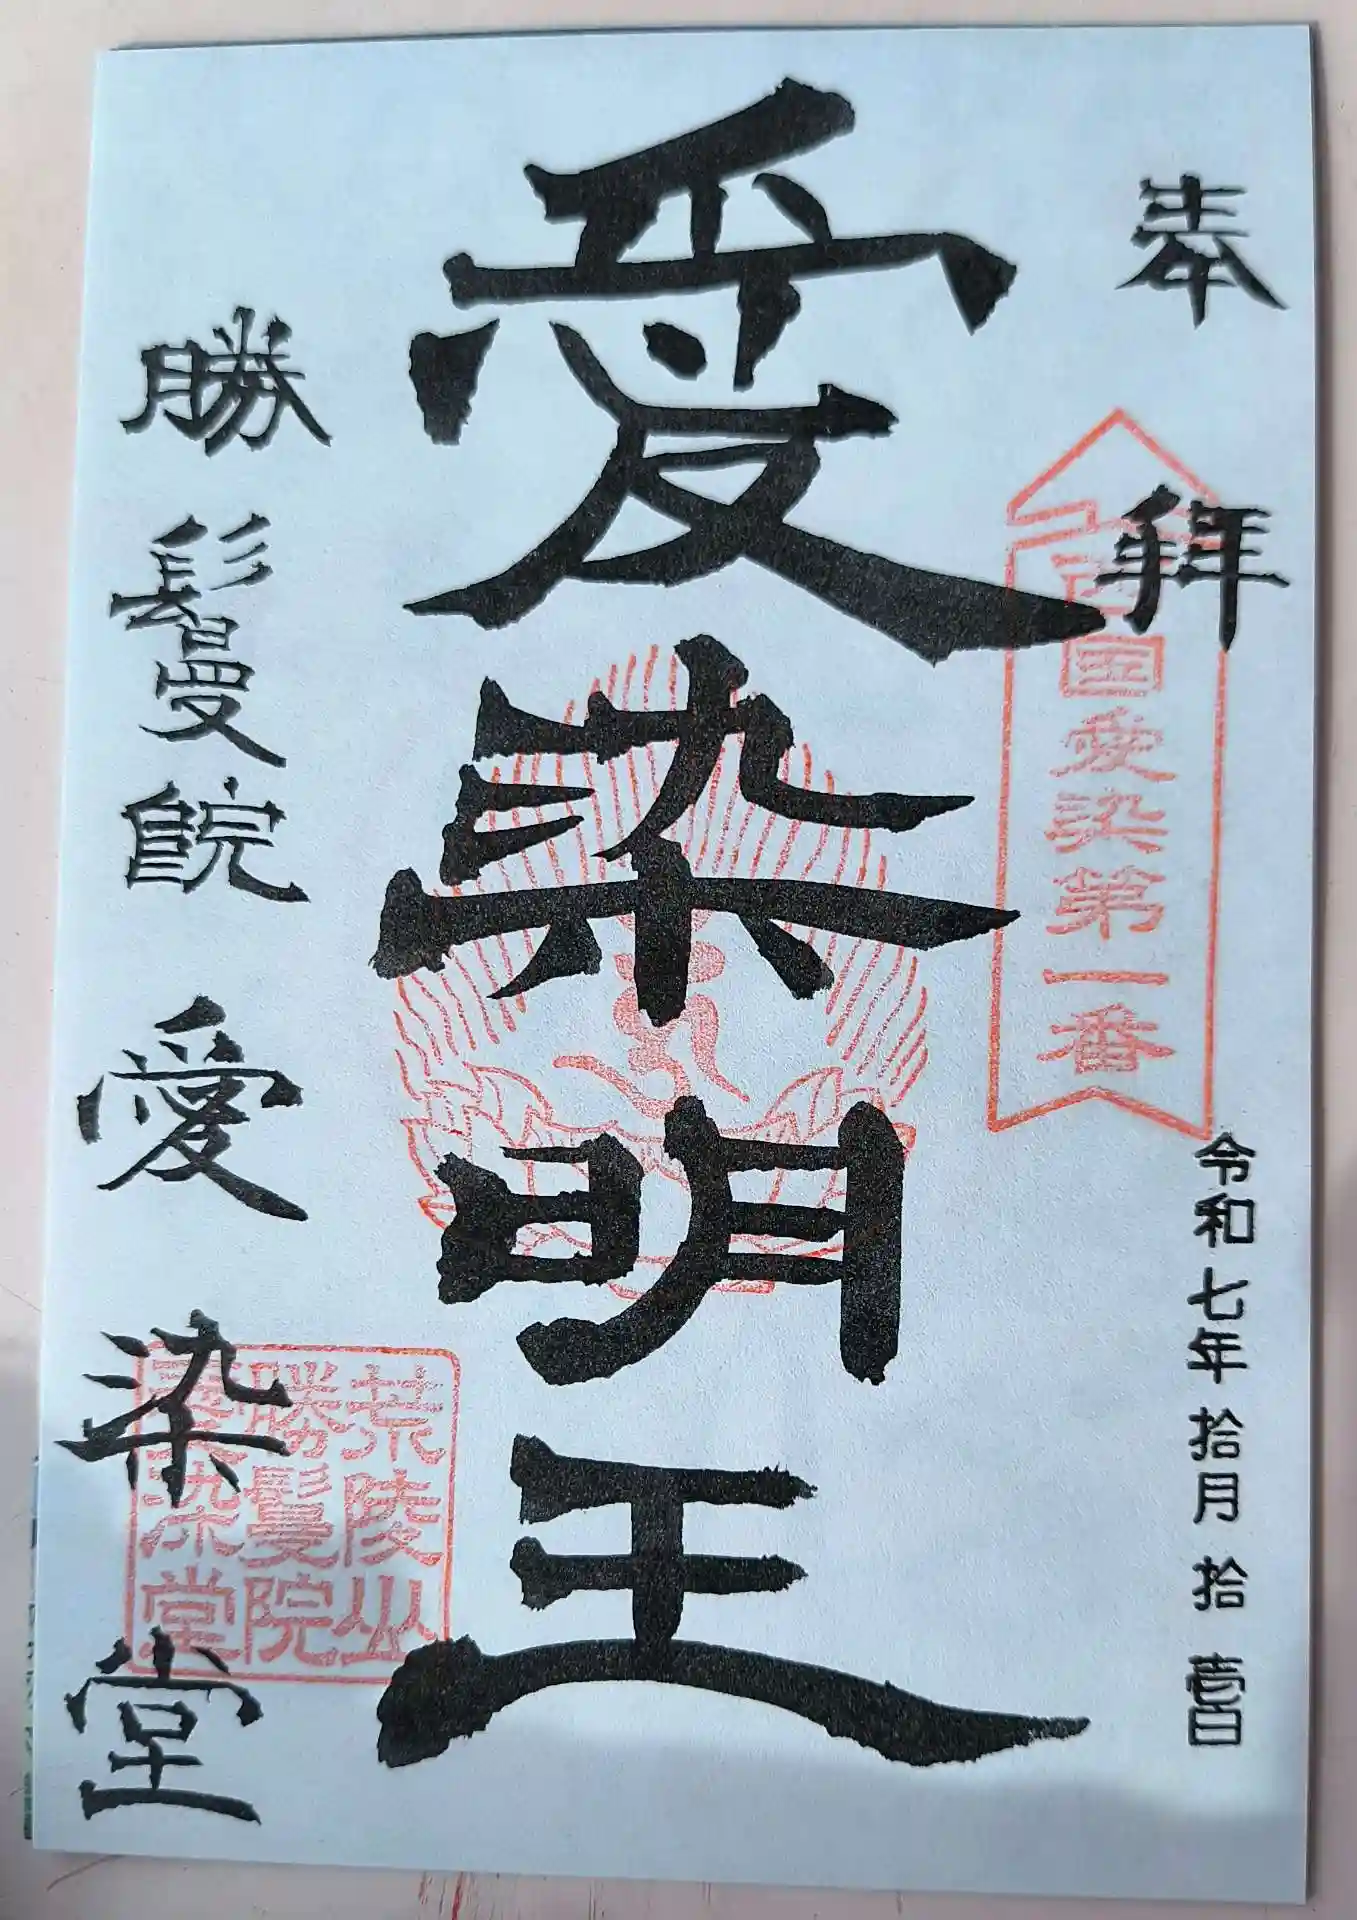 奉拝
西国愛染第一番
令和七年拾月拾壹日
愛染明王
勝鬘院愛染堂
荒陵山
勝鬘院
愛染堂